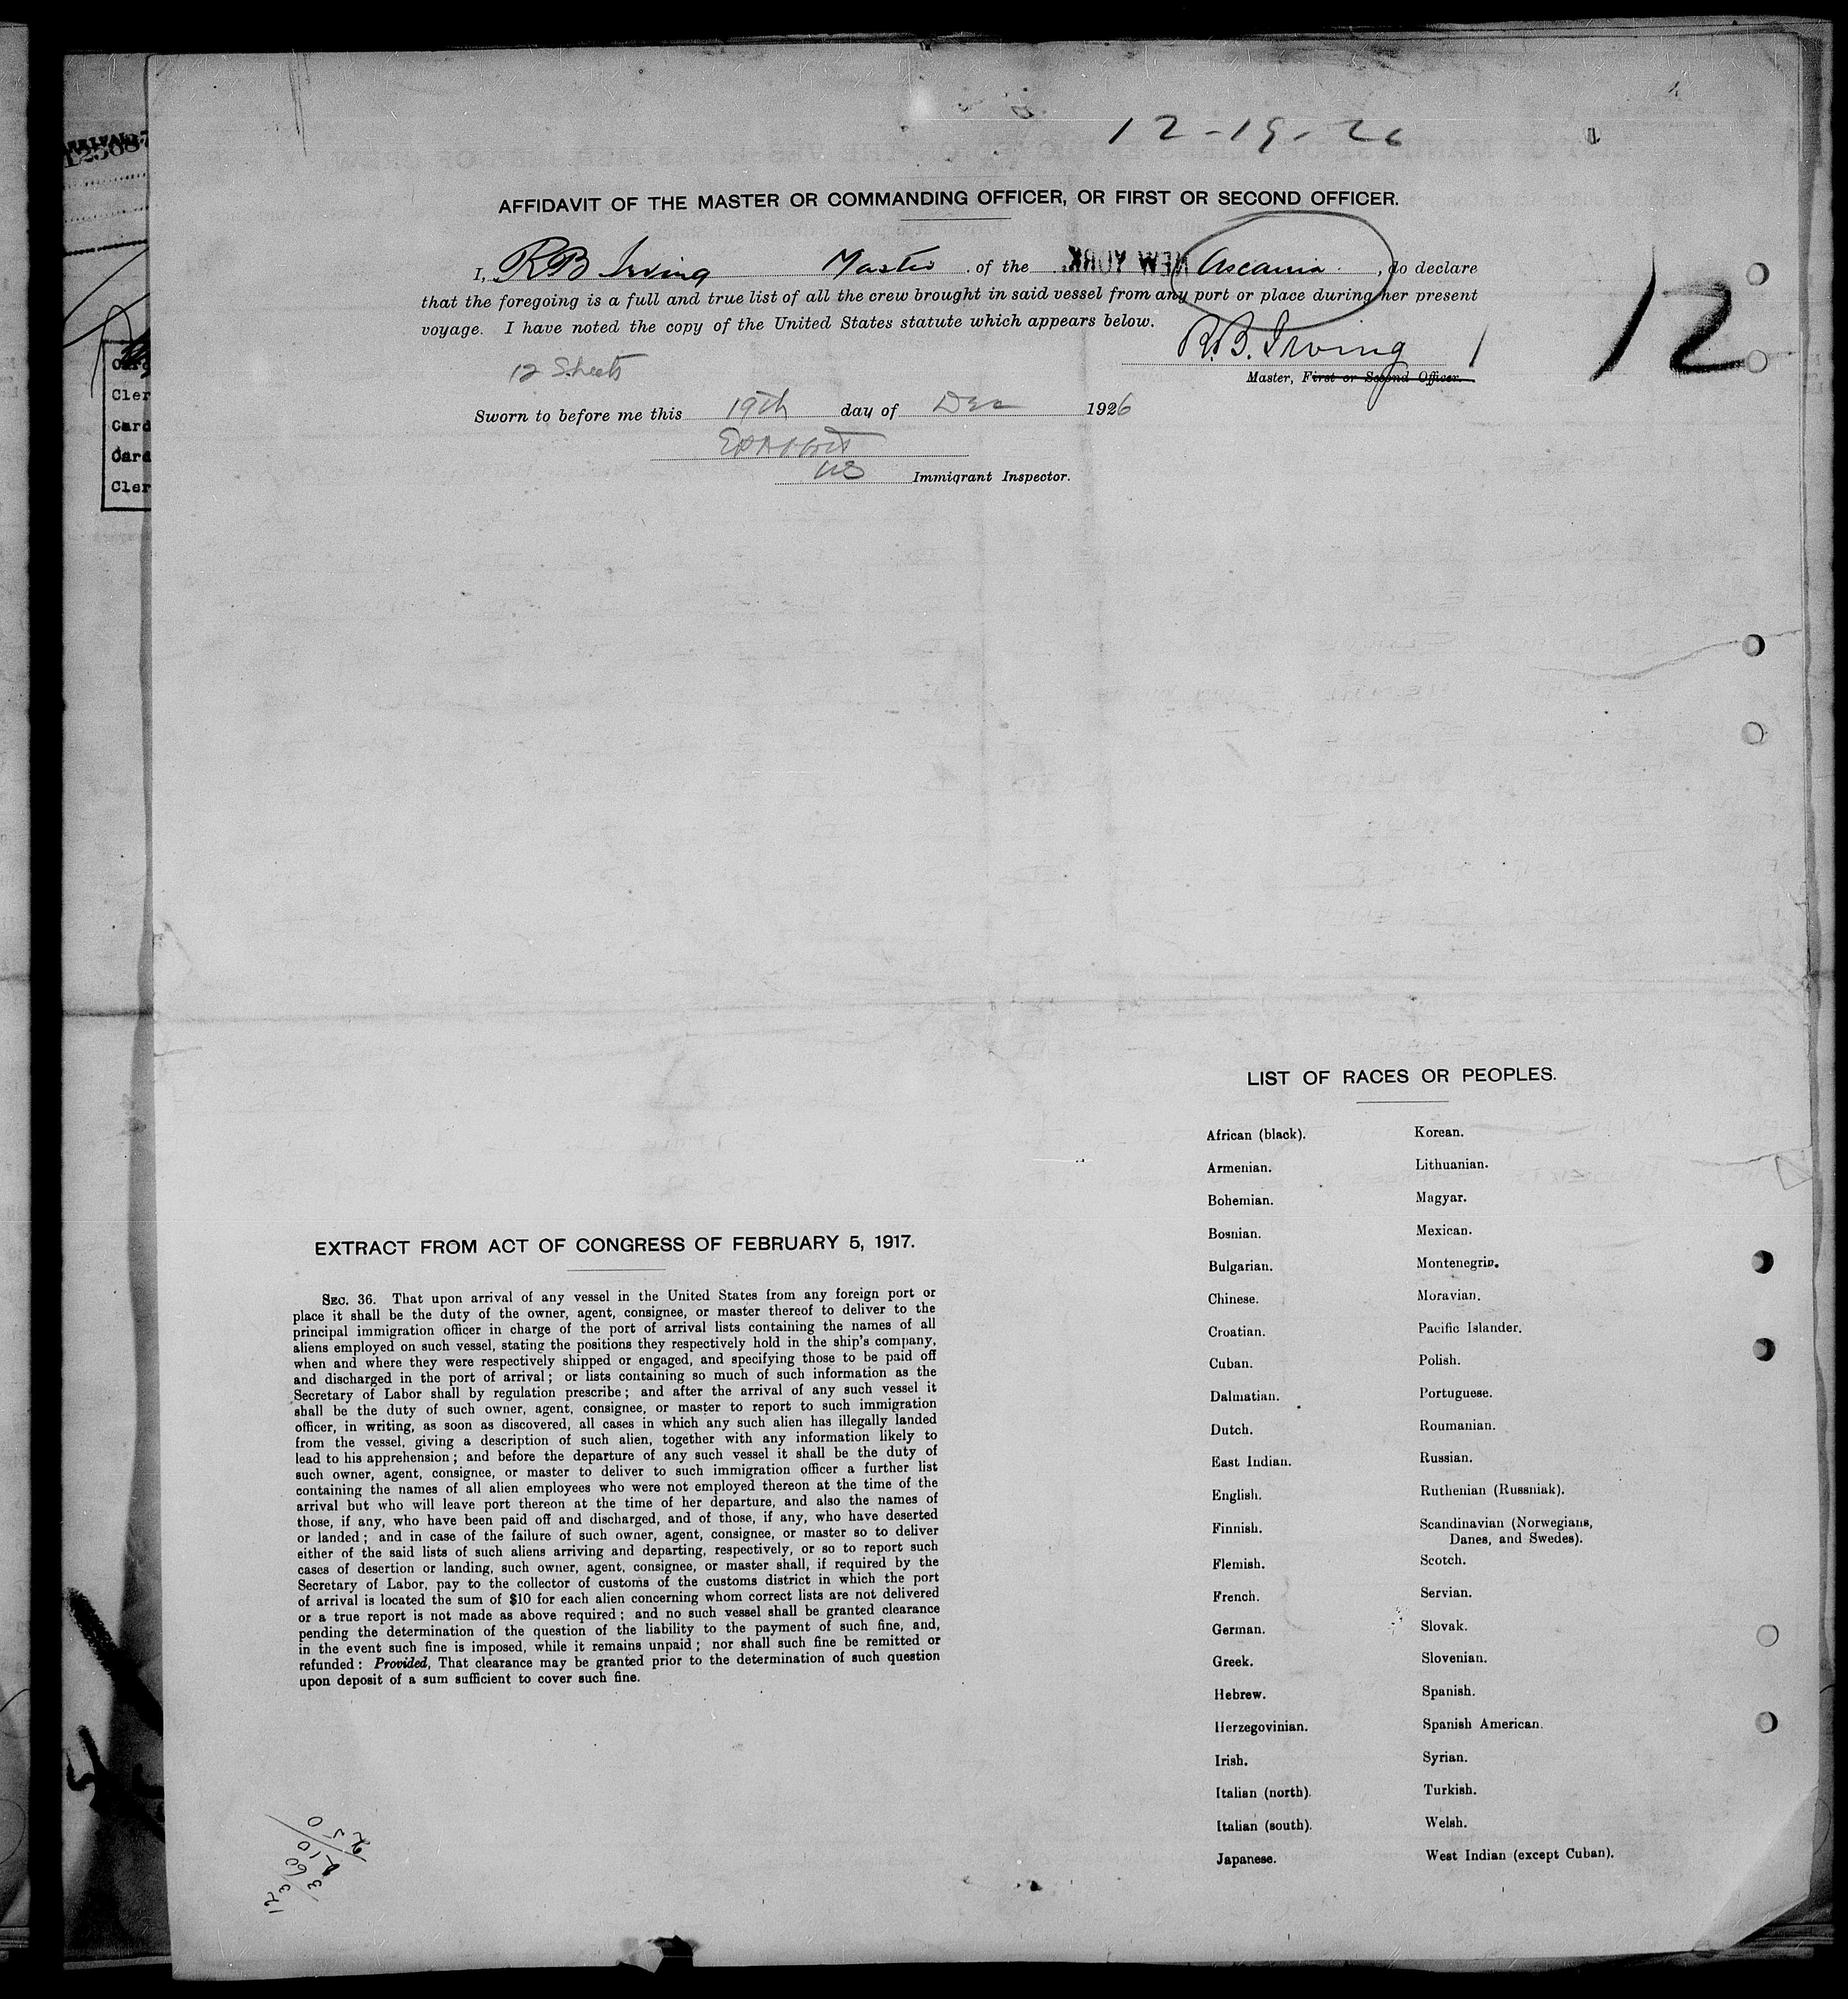 12-19-26
AFFIDAVIT OF THE MASTER OR COMMANDING OFFICER, OR FIRST OR SECOND OFFICER.
I, RB Irving Master of the NEW YORK Ascania, do declare
that the foregoing is a full and true list of all the crew brought in said vessel from any port or place during her present
voyage. I have noted the copy of the United States statute which appears below.
R.B. Irving 1
12
12 Sheets
Master, First or Second Officer.
Sworn to before me this 19th day of Dec 1926
US Immigrant Inspector.
Cler
Card
Card
Cler
EXTRACT FROM ACT OF CONGRESS OF FEBRUARY 5, 1917.
SEC. 36. That upon arrival of any vessel in the United States from any foreign port or
place it shall be the duty of the owner, agent, consignee, or master thereof to deliver to the
principal immigration officer in charge of the port of arrival lists containing the names of all
aliens employed on such vessel, stating the positions they respectively hold in the ship's company,
when and where they were respectively shipped or engaged, and specifying those to be paid off
and discharged in the port of arrival; or lists containing so much of such information as the
Secretary of Labor shall by regulation prescribe; and after the arrival of any such vessel it
shall be the duty of such owner, agent, consignee, or master to report to such immigration
officer, in writing, as soon as discovered, all cases in which any such alien has illegally landed
from the vessel, giving a description of such alien, together with any information likely to
lead to his apprehension; and before the departure of any such vessel it shall be the duty of
such owner, agent, consignee, or master to deliver to such immigration officer a further list
containing the names of all alien employees who were not employed thereon at the time of the
arrival but who will leave port thereon at the time of her departure, and also the names of
those, if any, who have been paid off and discharged, and of those, if any, who have deserted
or landed; and in case of the failure of such owner, agent, consignee, or master so to deliver
either of the said lists of such aliens arriving and departing, respectively, or so to report such
cases of desertion or landing, such owner, agent, consignee, or master shall, if required by the
Secretary of Labor, pay to the collector of customs of the customs district in which the port
of arrival is located the sum of $10 for each alien concerning whom correct lists are not delivered
or a true report is not made as above required; and no such vessel shall be granted clearance
pending the determination of the question of the liability to the payment of such fine, and,
in the event such fine is imposed, while it remains unpaid; nor shall such fine be remitted or
refunded: Provided, That clearance may be granted prior to the determination of such question
upon deposit of a sum sufficient to cover such fine.
LIST OF RACES OR PEOPLES.
African (black).
Armenian.
Bohemian.
Bosnian.
Bulgarian.
Chinese.
Croatian.
Cuban.
Dalmatian.
Dutch.
East Indian.
English.
Finnish.
Flemish.
French.
German.
Greek.
Hebrew.
Herzegovinian.
Irish.
Italian (north).
Italian (south).
Japanese.
Korean.
Lithuanian.
Magyar.
Mexican.
Montenegrin.
Moravian.
Pacific Islander.
Polish.
Portuguese.
Roumanian.
Russian.
Ruthenian (Russniak).
Scandinavian (Norwegians,
Danes, and Swedes).
Scotch.
Servian.
Slovak.
Slovenian.
Spanish.
Spanish American.
Syrian.
Turkish.
Welsh.
West Indian (except Cuban).